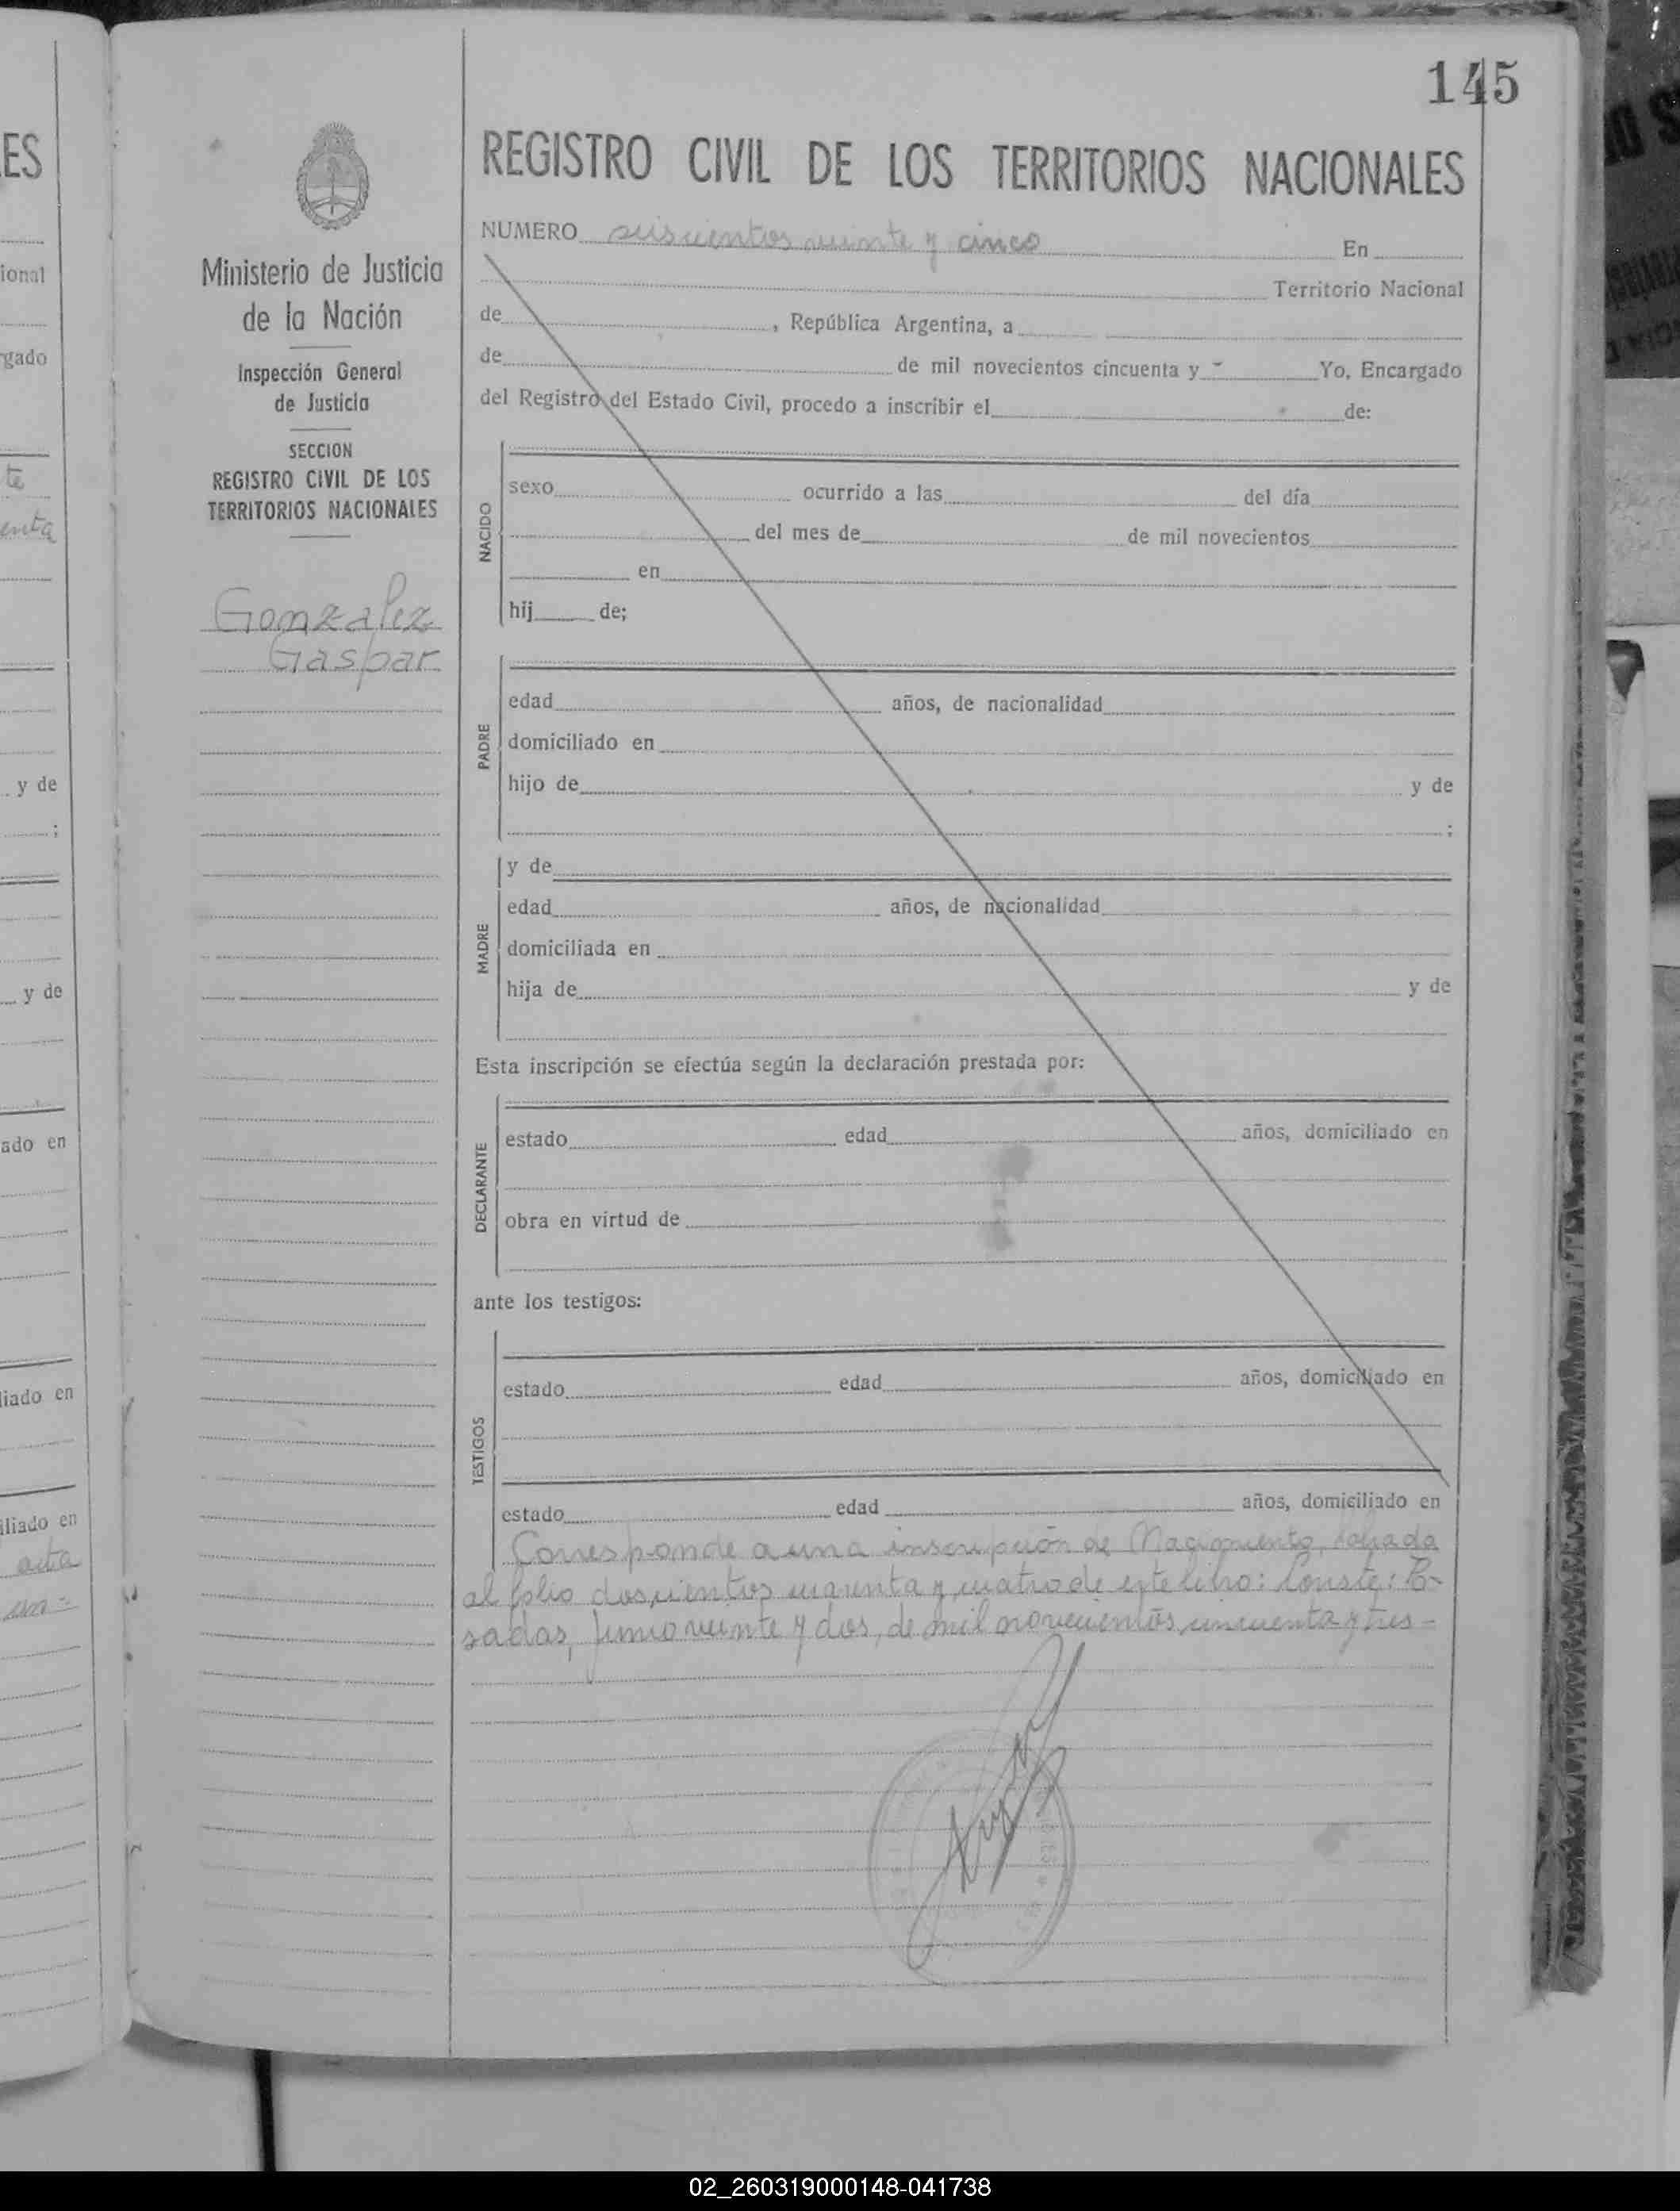 145
ES
ional
rgado
te
enta
y de
;
y de
ado en
liado en
iliado en
acta
Ministerio de Justicia
de la Nación
Inspección General
de Justicia
SECCION
REGISTRO CIVIL DE LOS
TERRITORIOS NACIONALES
Gonzalez
Gaspar
REGISTRO CIVIL DE LOS TERRITORIOS NACIONALES
NUMERO seiscientos veinte y cinco En
Territorio Nacional
de , República Argentina, a
de de mil novecientos cincuenta y - Yo, Encargado
del Registro del Estado Civil, procedo a inscribir el de:
NACIDO
sexo ocurrido a las del día
del mes de de mil novecientos
en
hij de;
PADRE
edad años, de nacionalidad
domiciliado en
hijo de y de
;
MADRE
y de
edad años, de nacionalidad
domiciliada en
hija de y de
Esta inscripción se efectúa según la declaración prestada por:
DECLARANTE
estado edad años, domiciliado en
obra en virtud de
ante los testigos:
TESTIGOS
estado edad años, domiciliado en
estado edad años, domiciliado en
Corresponde a una inscripción de Nacimiento, labrada
al folio doscientos cuarenta y cuatro de este libro: Conste: Po-
sadas, Junio veinte y dos, de mil novecientos cincuenta y tres-
02_260319000148-041738